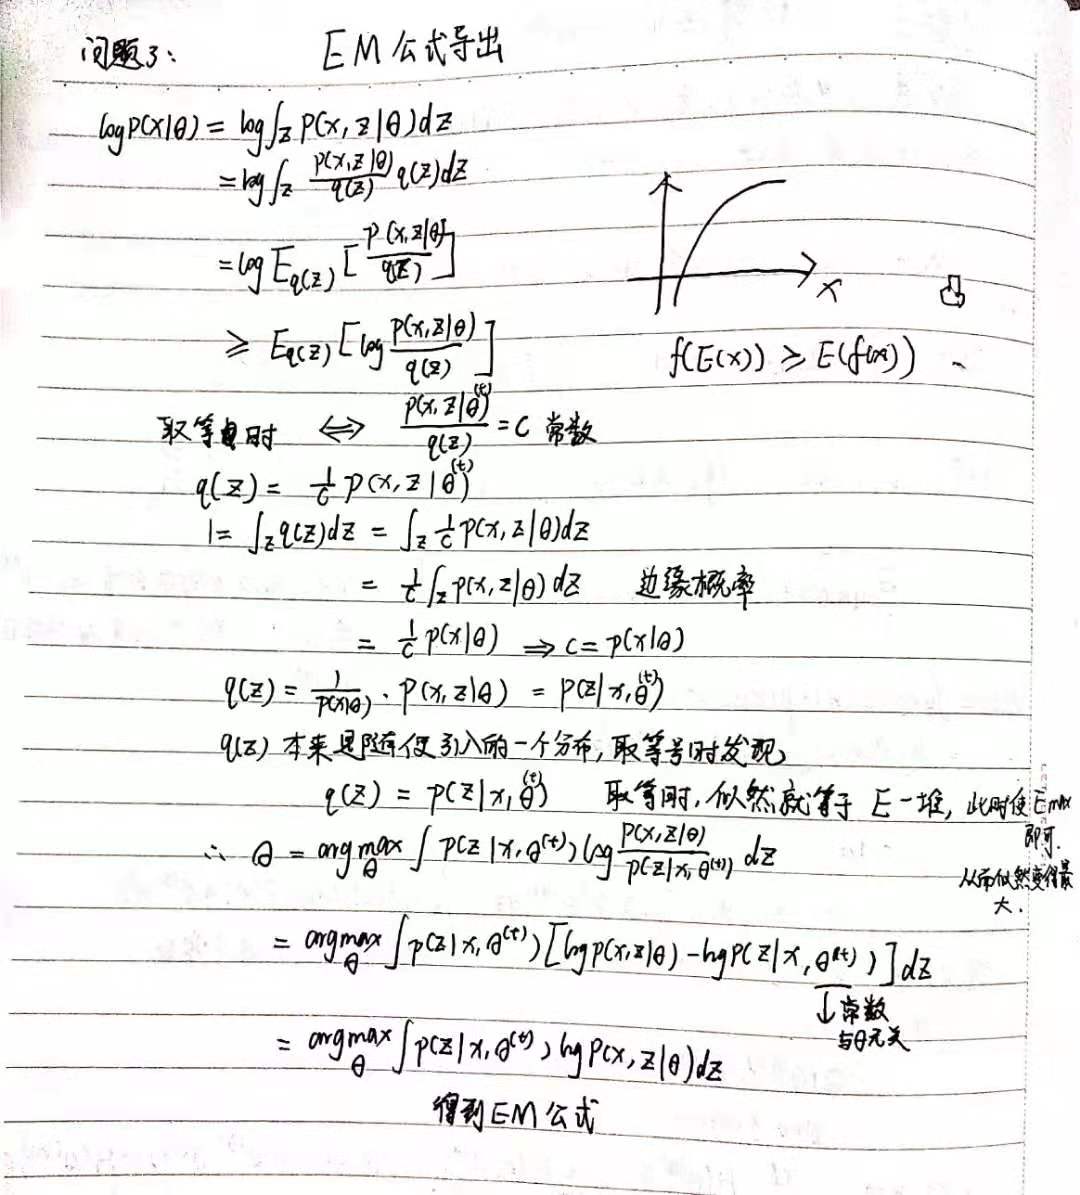 问题3: EM公式导出
logP(X|θ) = log∫_Z P(x,z|θ)dz
= log∫_Z P(x,z|θ)/q(z) q(z)dz
= log E_q(z) [P(x,z|θ)/q(z)]
≥ E_q(z) [log P(x,z|θ)/q(z)]
x
f(E(x)) ≥ E(f(x))
取等号时 ⇔ P(x,z|θ^(t))/q(z) = C 常数
q(z) = 1/c P(x,z|θ^(t))
1 = ∫_Z q(z)dz = ∫_Z 1/c P(x,z|θ)dz
= 1/c ∫_Z P(x,z|θ)dz 边缘概率
= 1/c P(x|θ) ⇒ c = P(x|θ)
q(z) = 1/P(x|θ) · P(x,z|θ) = P(z|x,θ^(t))
q(z) 本来是随便引入的一个分布,取等号时发现,
q(z) = P(z|x,θ^(t)) 取等时,似然就等于 E一堆, 此时使Emax
即可.
从而似然变得最
大.
∴ θ = argmax_θ ∫ P(z|x,θ^(t)) log P(x,z|θ)/P(z|x,θ^(t)) dz
= argmax_θ ∫ P(z|x,θ^(t)) [log P(x,z|θ) - log P(z|x,θ^(t))] dz
↓常数
与θ无关
= argmax_θ ∫ P(z|x,θ^(t)) log P(x,z|θ)dz
得到EM公式